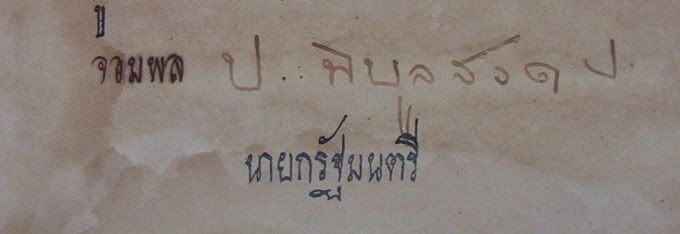 จอมพล ป. พิบูลสงคราม
นายกรัฐมนตรี